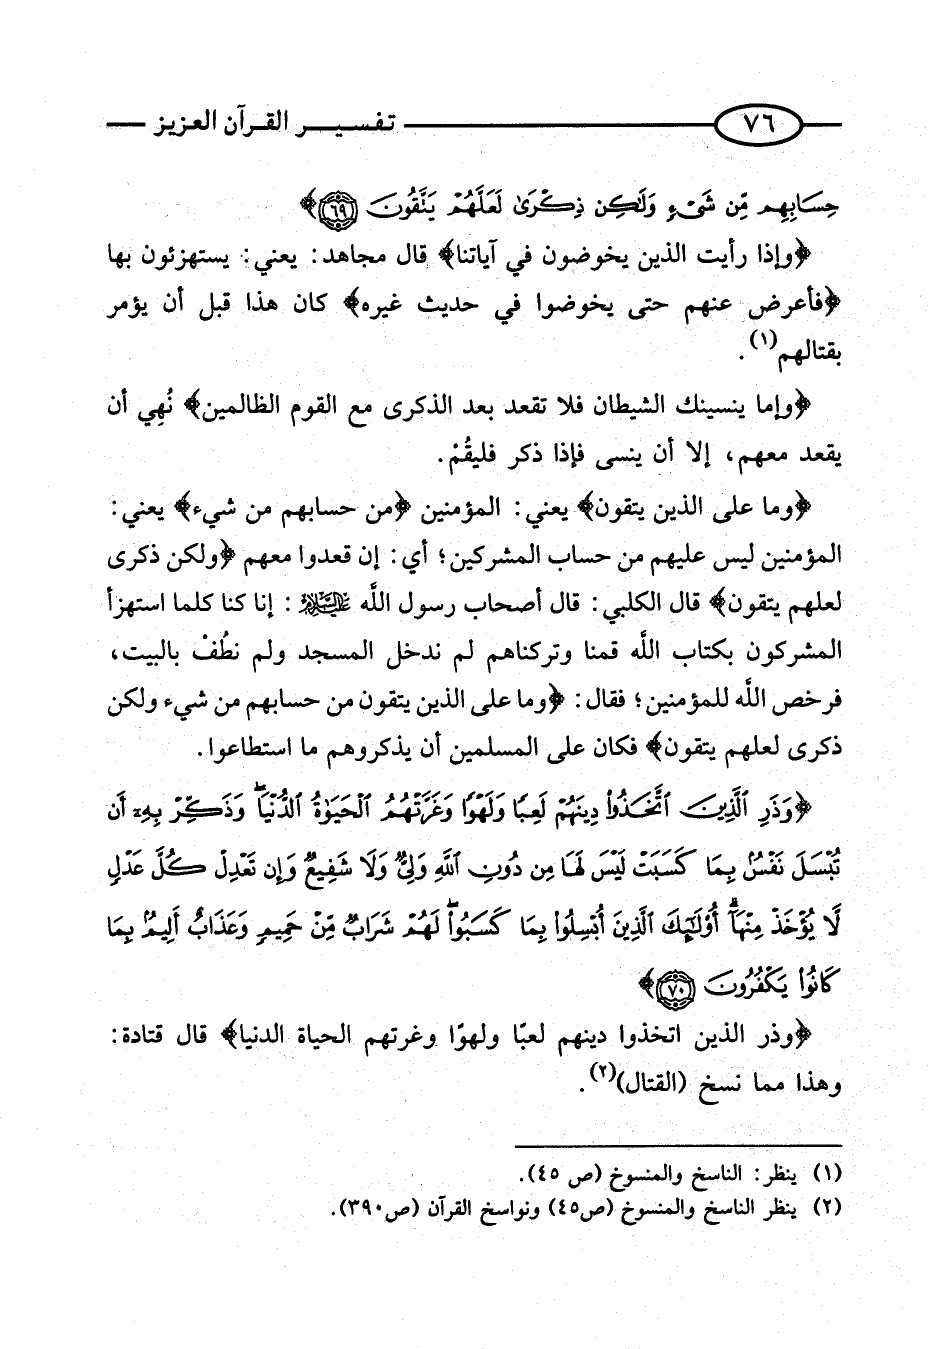 ٧٦ تفسير القرآن العزيز
حِسَابِهِم مِّن شَىْءٍ وَلَٰكِن ذِكْرَىٰ لَعَلَّهُمْ يَتَّقُونَ ﴿٦٩﴾
﴿وإذا رأيت الذين يخوضون في آياتنا﴾ قال مجاهد: يعني: يستهزئون بها
﴿فأعرض عنهم حتى يخوضوا في حديث غيره﴾ كان هذا قبل أن يؤمر
بقتالهم(١).
﴿وإما ينسينك الشيطان فلا تقعد بعد الذكرى مع القوم الظالمين﴾ نُهِي أن
يقعد معهم، إلا أن ينسى فإذا ذكر فليقُمْ.
﴿وما على الذين يتقون﴾ يعني: المؤمنين ﴿من حسابهم من شيء﴾ يعني:
المؤمنين ليس عليهم من حساب المشركين؛ أي: إن قعدوا معهم ﴿ولكن ذكرى
لعلهم يتقون﴾ قال الكلبي: قال أصحاب رسول اللَّه ﷺ: إنا كنا كلما استهزأ
المشركون بكتاب اللَّه قمنا وتركناهم لم ندخل المسجد ولم نطُفْ بالبيت،
فرخص اللَّه للمؤمنين؛ فقال: ﴿وما على الذين يتقون من حسابهم من شيء ولكن
ذكرى لعلهم يتقون﴾ فكان على المسلمين أن يذكروهم ما استطاعوا.
﴿وَذَرِ ٱلَّذِينَ ٱتَّخَذُوا۟ دِينَهُمْ لَعِبًا وَلَهْوًا وَغَرَّتْهُمُ ٱلْحَيَوٰةُ ٱلدُّنْيَا ۚ وَذَكِّرْ بِهِۦٓ أَن
تُبْسَلَ نَفْسٌۢ بِمَا كَسَبَتْ لَيْسَ لَهَا مِن دُونِ ٱللَّهِ وَلِىٌّ وَلَا شَفِيعٌ وَإِن تَعْدِلْ كُلَّ عَدْلٍ
لَّا يُؤْخَذْ مِنْهَآ ۗ أُو۟لَٰٓئِكَ ٱلَّذِينَ أُبْسِلُوا۟ بِمَا كَسَبُوا۟ ۖ لَهُمْ شَرَابٌ مِّنْ حَمِيمٍ وَعَذَابٌ أَلِيمٌۢ بِمَا
كَانُوا۟ يَكْفُرُونَ ﴿٧٠﴾
﴿وذر الذين اتخذوا دينهم لعبًا ولهوًا وغرتهم الحياة الدنيا﴾ قال قتادة:
وهذا مما نسخ (القتال)(٢).
(١) ينظر: الناسخ والمنسوخ (ص ٤٥).
(٢) ينظر الناسخ والمنسوخ (ص٤٥) ونواسخ القرآن (ص٣٩٠).